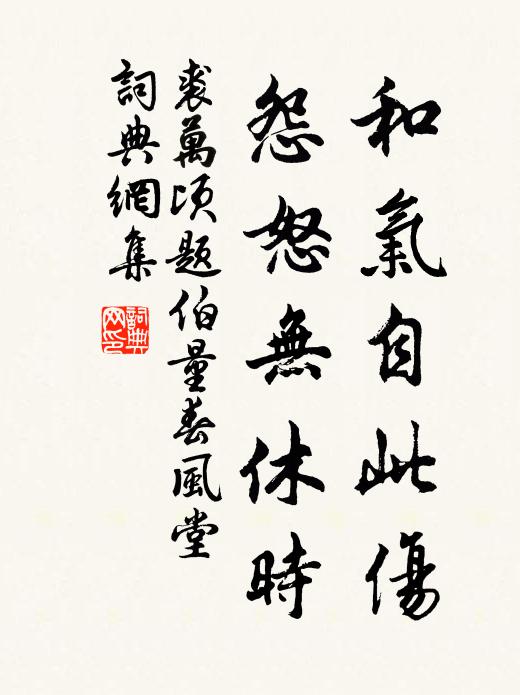 和氣自此傷
怨怒無休時
裘萬頃題伯量春風堂
詞典網集
詞典
网印